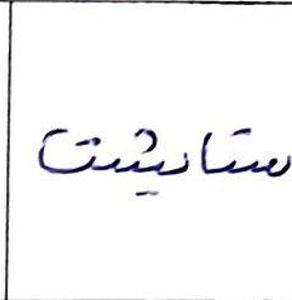 ستایشت